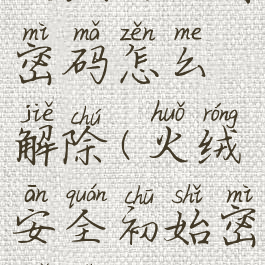 mì mǎ zěn me
密码怎么
jiě chú huǒ róng
解除(火绒
ān quán chū shǐ mì
安全初始密